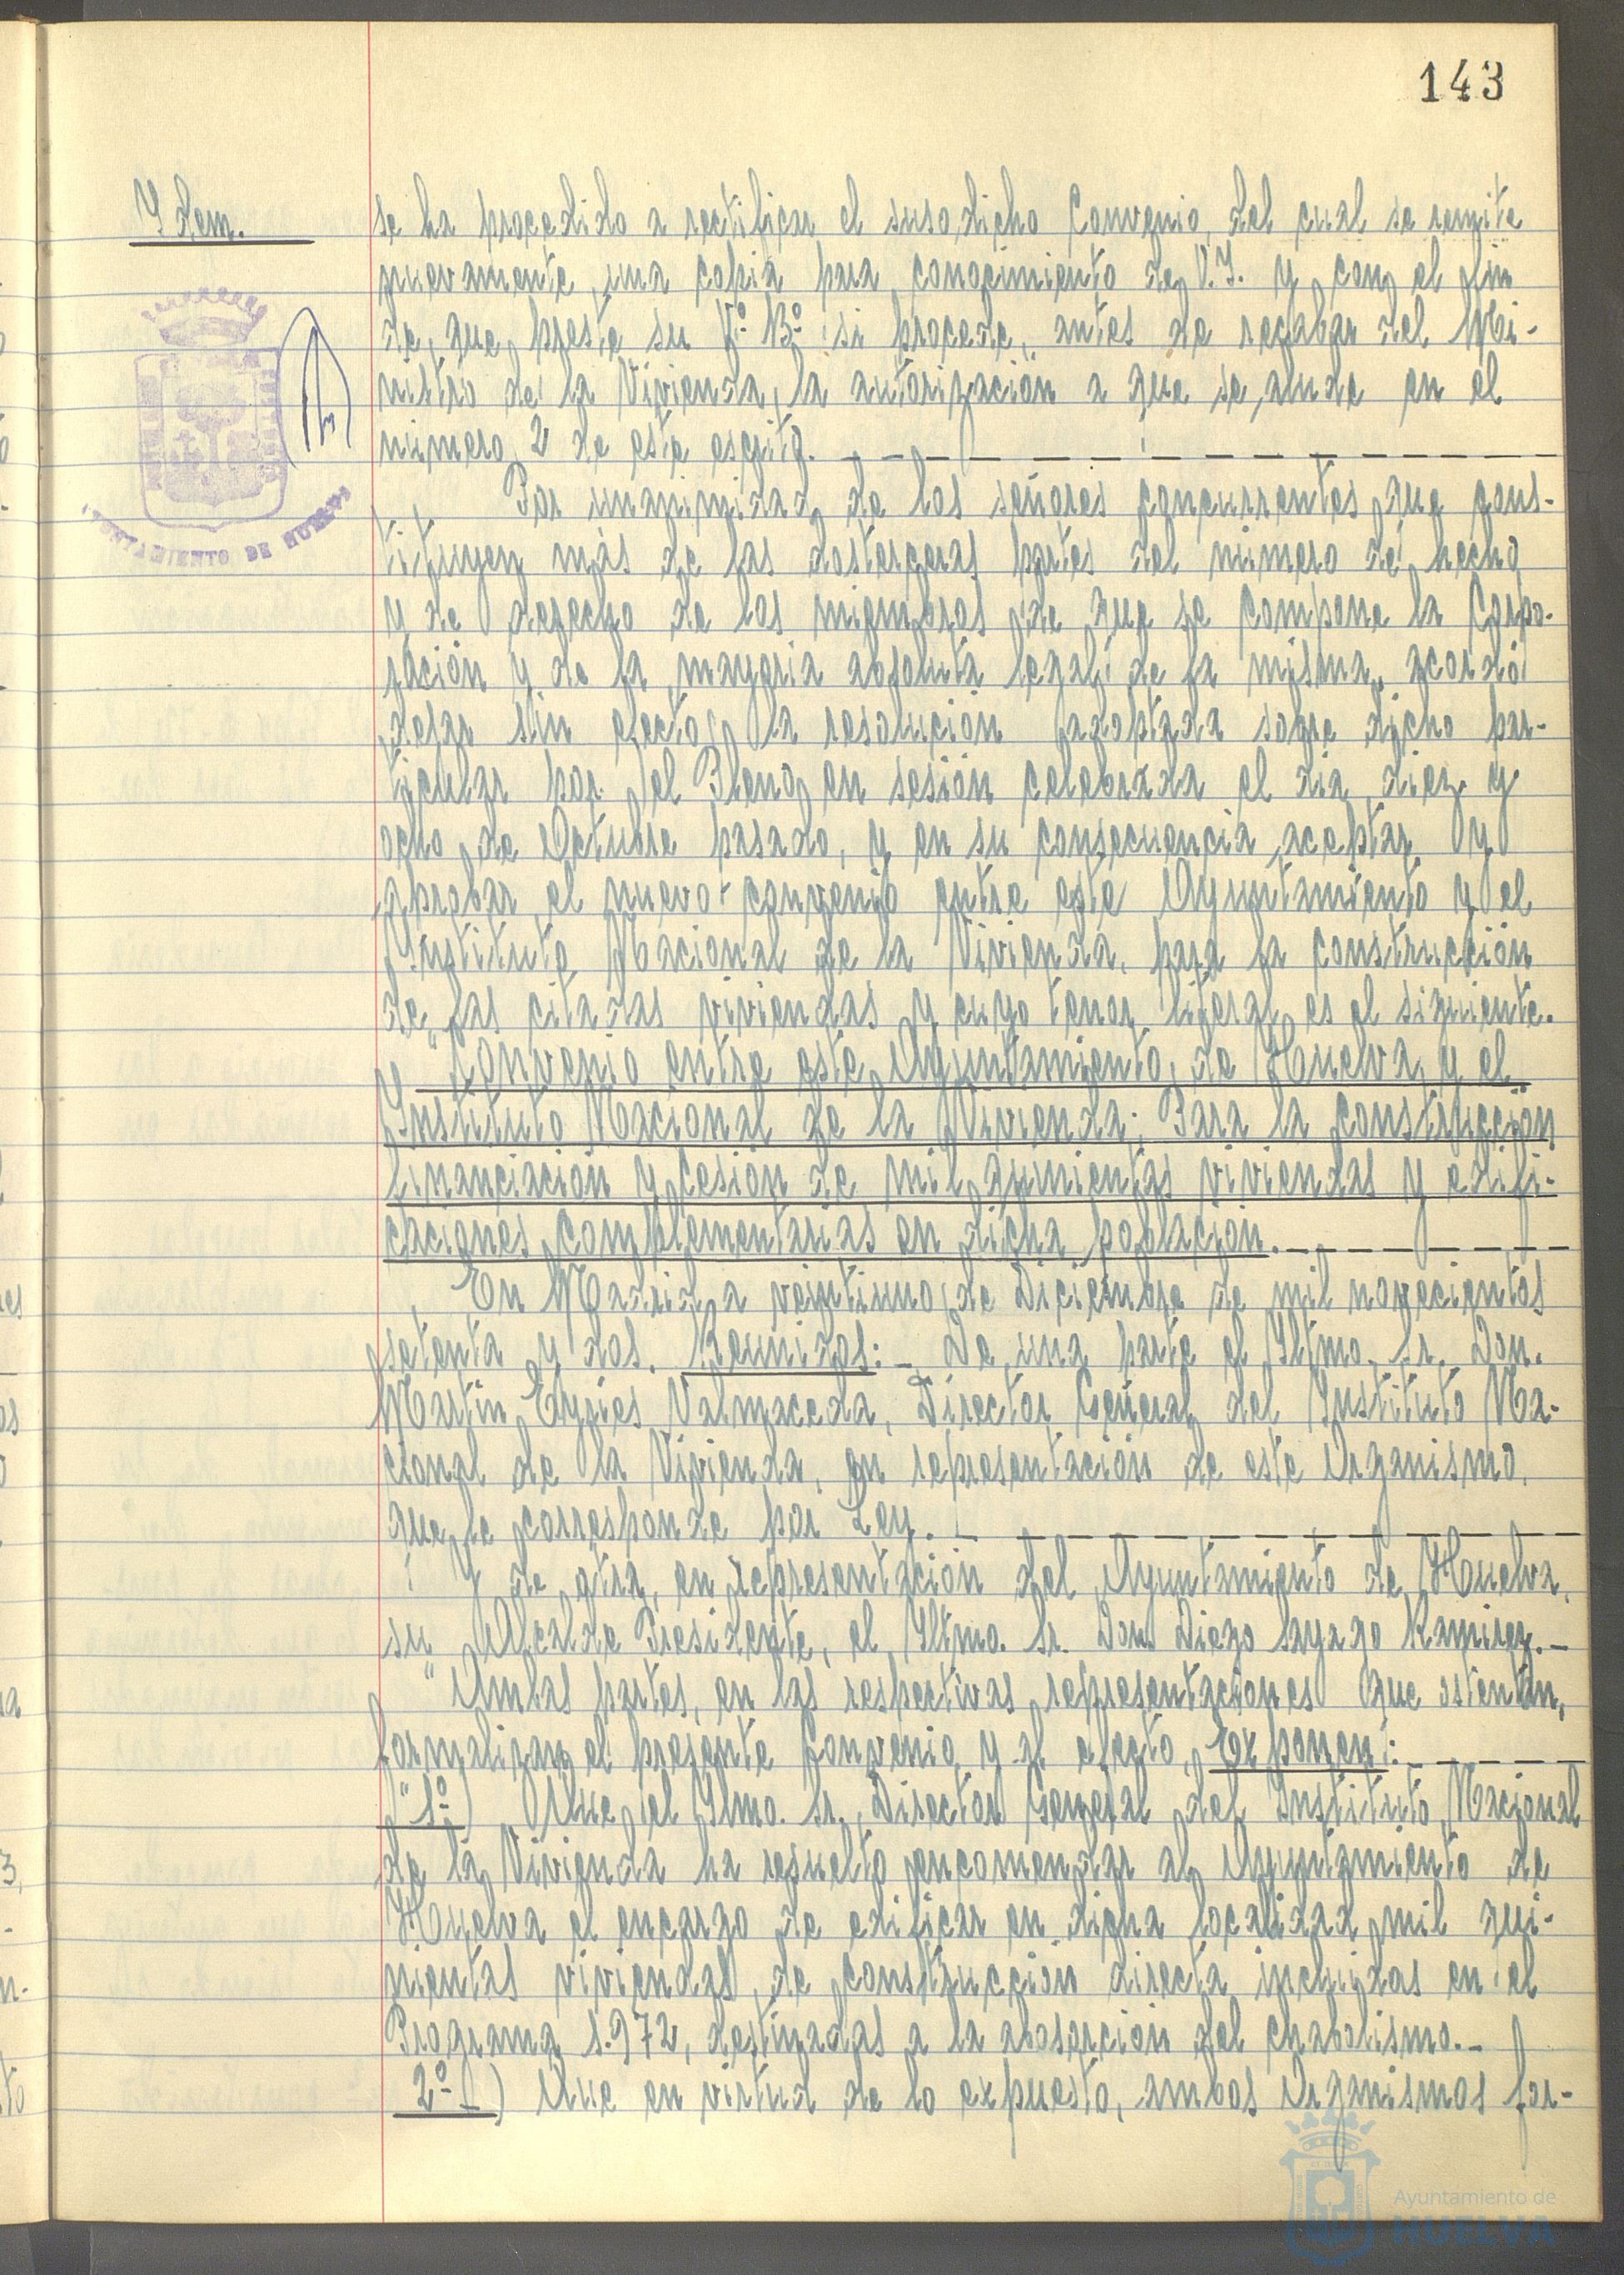 143
Ydem.
se ha procedido a rectificar el susodicho Convenio, del cual se remite
nuevamente una copia para conocimiento de V.I. y con el fin
de que preste su Vº Bº si procede, antes de recabar del Mi-
nistro de la Vivienda, la autorización a que se alude en el
número 2 de este escrito.
Por unanimidad de los señores concurrentes que cons-
tituyen más de las dosterceras partes del número de hecho
y de derecho de los miembros de que se compone la Corpo-
ración y de la mayoria absoluta legal de la misma, acordó
dejar sin efecto la resolución adoptada sobre dicho par-
ticular por el Pleno en sesión celebrada el dia diez y
ocho de Octubre pasado, y en su consecuencia aceptar y
aprobar el nuevo convenio entre este Ayuntamiento y el
Ynstituto Nacional de la Vivienda, para la construcción
de las citadas viviendas y cuyo tenor literal es el siguiente.
"Convenio entre este Ayuntamiento, de Huelva y el
Ynstituto Nacional de la Vivienda; Para la construcción
financiación y cesión de mil quinientas viviendas y edifi-
caciones complementarias en dicha población.
En Madrid a veintiuno de Diciembre de mil novecientos
setenta y dos. Reunidos:- De una parte el Yltmo. Sr. Don.
Martín Eyries Valmaceda, Director General del Ynstituto Na-
cional de la Vivienda, en representación de este Organismo,
que le corresponde por Ley.
Y de otra, en representación del Ayuntamiento de Huelva,
su Alcalde Presidente, el Yltmo. Sr. Don Diego Sayago Ramirez.-
"Ambas partes, en las respectivas representaciones que ostentan,
formalizan el presente Convenio y al efecto, Exponen:
"1º-) Que el Ylmo. Sr. Director General del Instituto Nacional
de la Vivienda ha resuelto encomendar al Ayuntamiento de
Huelva el encargo de edificar en dicha localidad mil qui-
nientas viviendas, de construcción directa incluidas en el
Programa 1.972, destinadas a la absorción del chabolismo.-
2º-) Que en virtud de lo expuesto, ambos Organismos for-
AYUNTAMIENTO DE HUELVA
Ayuntamiento de
HUELVA